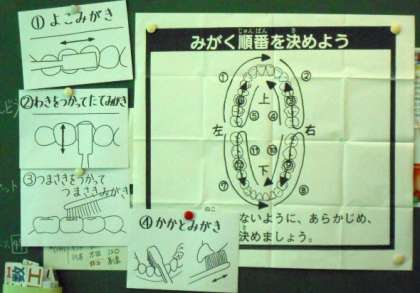 ①よこみがき
②わきをつかってたてみがき
③つまさきをつかって
つまさきみがき
④かかとみがき
じゅんばん
き
みがく順番を決めよう
① ②
上
③
⑥ ⑤ ④
左 右
⑪ ⑩
下
⑦ ⑧
ないように、あらかじめ、
決めましょう。
数